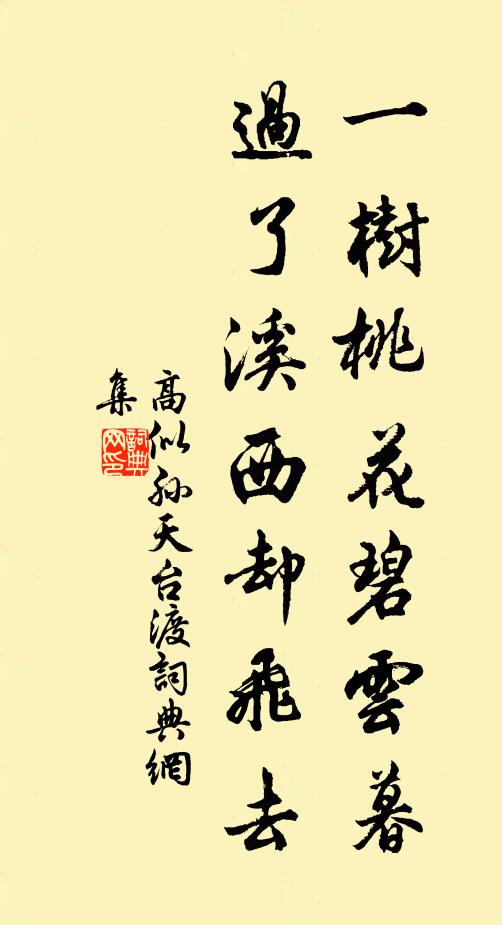 一樹桃花碧雲暮
過了溪西却飛去
高似孫天台渡詞典網
集
詞典網印